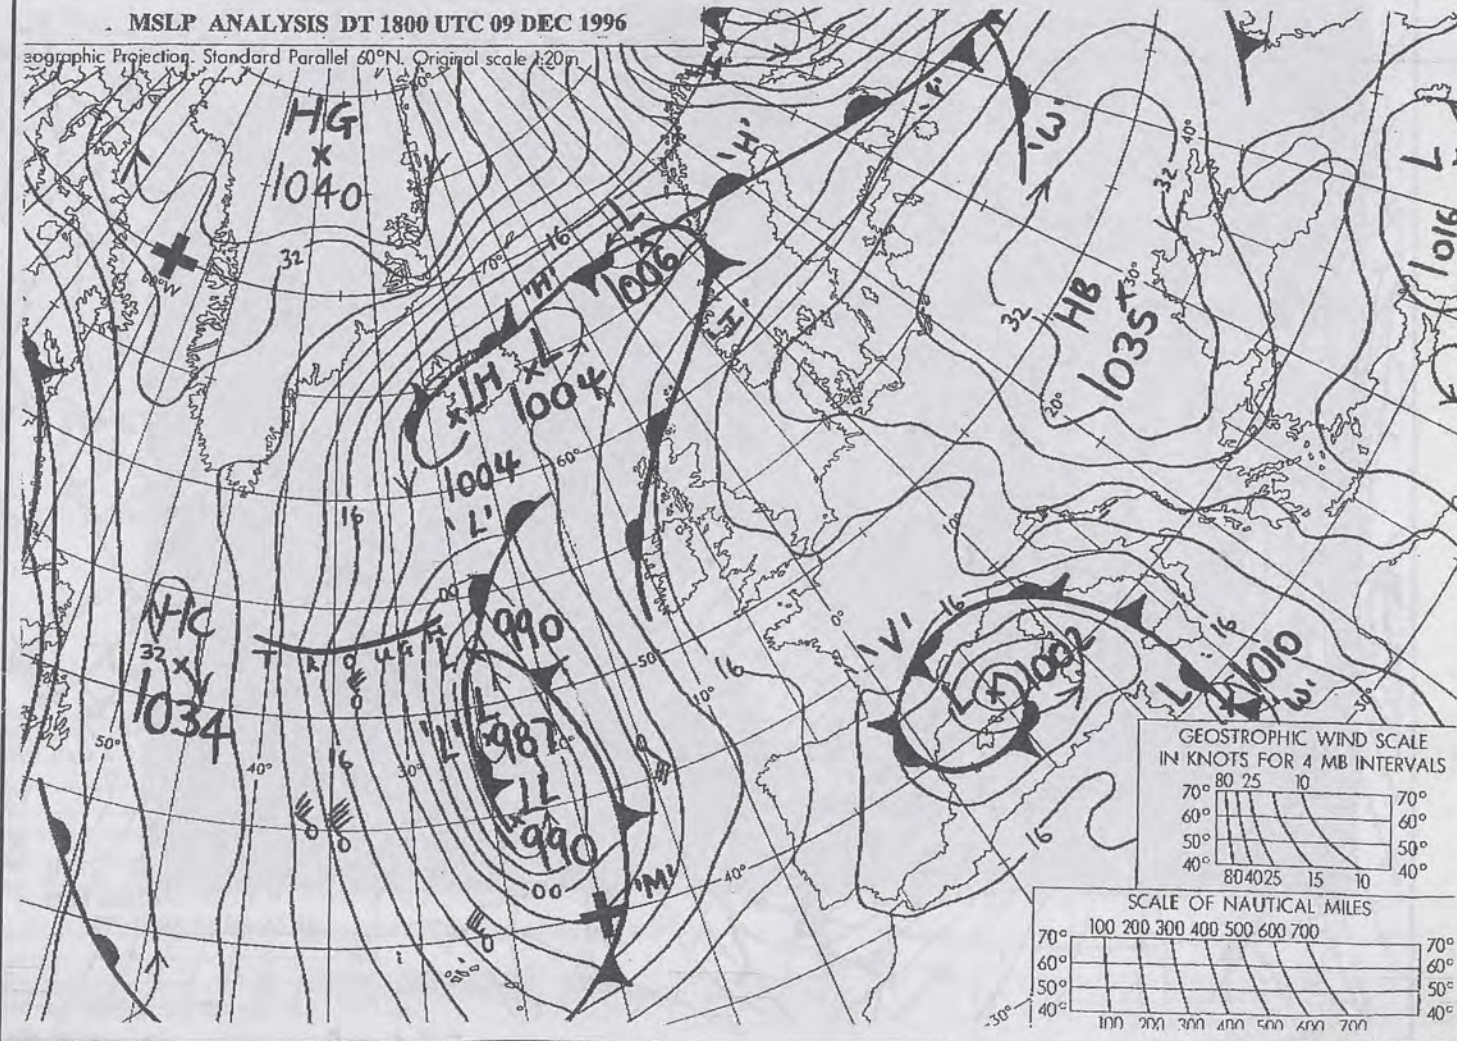 MSLP ANALYSIS DT 1800 UTC 09 DEC 1996
eographic Projection. Standard Parallel 60°N. Original scale 1:20m
HG
1040
32
60°W
70°
16
L
1006
'H'
'H'
'F'
'W'
40°
32
32
HB
1035
30°
20°
L
1016
'H'
L
1004
LH
1004
60°
'L'
16
00
HC
32
1034
T R O U G H
L
990
50°
10°
16
L
987
'L'
LL
990
00
'M'
40°
50°
40°
16
30°
20°
0
0
0
0
0
10°
0°
'V'
16
L
1002
16
L
1010
'W'
16
30°
GEOSTROPHIC WIND SCALE
IN KNOTS FOR 4 MB INTERVALS
80 25 10
70° 70°
60° 60°
50° 50°
40° 40°
80 40 25 15 10
SCALE OF NAUTICAL MILES
100 200 300 400 500 600 700
70° 70°
60° 60°
50° 50°
40° 40°
100 200 300 400 500 600 700
-30°